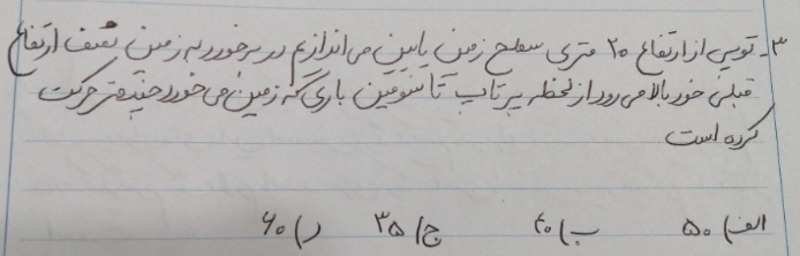 ۳- توپی از ارتفاع ۲۰ متری سطح زمین پایین می‌اندازیم در برخورد به زمین نصف ارتفاع
قبلی خود بالا می‌رود از لحظه پرتاب تا سومین باری که زمین می‌خورد چند متر حرکت
کرده است
الف) ۵۰ ب) ۴۰ ج) ۳۵ د) ۶۰